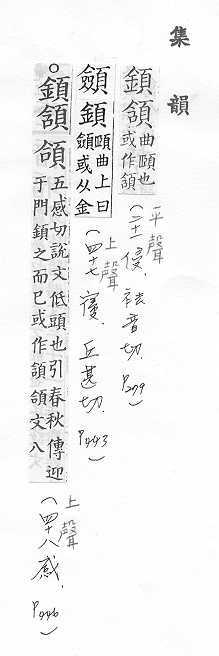 集韻
顉頷
曲頤也
或作頷
平聲
(二十一侵，祛音切. P279)
顩顉
頤曲上曰
顩或从金
上聲
(四十七寑，丘甚切. P443)
○顉頷頜
五感切說文低頭也引春秋傳迎
于門顉之而已或作頷頜文八
上聲
(四十八感. P446)